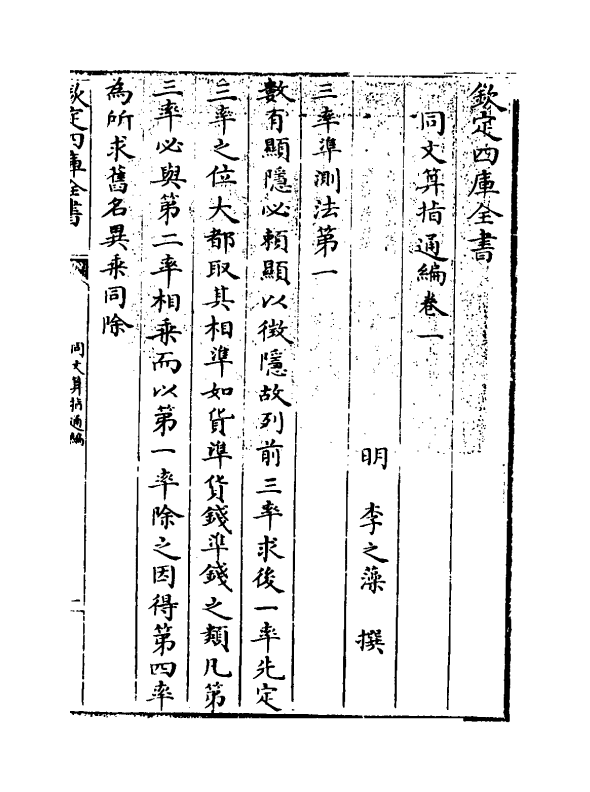 欽定四庫全書
同文算指通編卷一
明 李之藻 撰
三率準測法第一
數有顯隱必賴顯以徴隱故列前三率求後一率先定
三率之位大都取其相準如貨準貨錢準錢之類凡第
三率必與第二率相乘而以第一率除之因得第四率
為所求舊名異乘同除
欽定四庫全書
同文算指通編